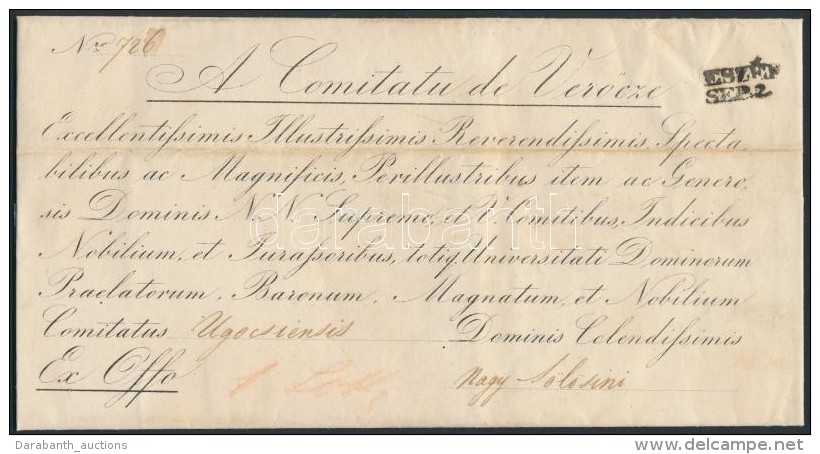 Nro 726
A Comitatu de Verőcze
ESZÉK
SEP. 2
Excellentissimis Illustrissimis Reverendissimis, Specta,
bilibus ac Magnificis, Perillustribus item ac Genero,
sis Dominis N. N. Supremo, et V. Comitibus, Iudicibus
Nobilium, et Jurassoribus, totiq. Universitati Dominorum
Praelatorum, Baronum, Magnatum, et Nobilium
Comitatus Ugocsiensis Dominis Colendissimis
Ex Offo Nagy Sőlősini
darabanth
Darabanth_auctions
www.delcampe.net